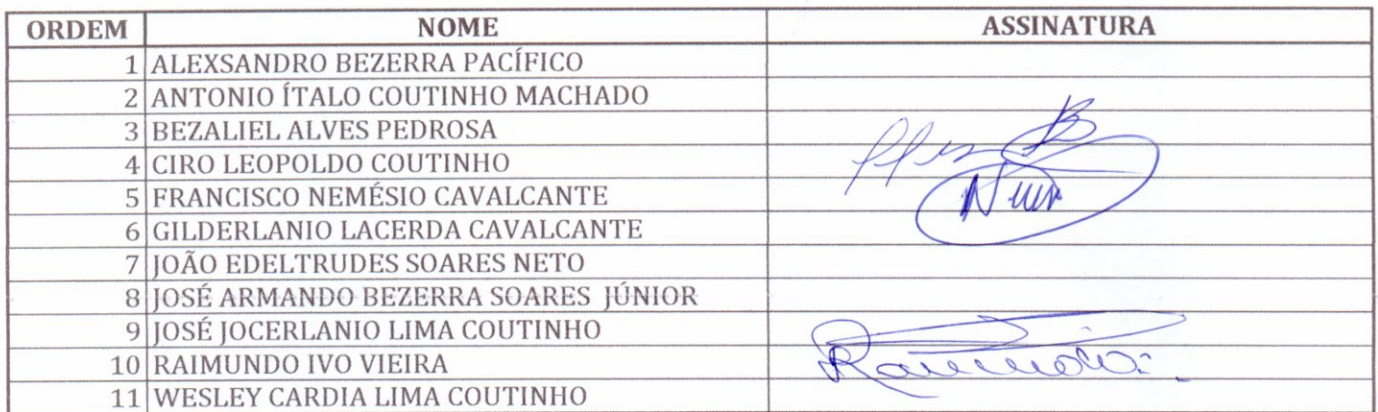 ORDEM NOME ASSINATURA
1 ALEXSANDRO BEZERRA PACÍFICO
2 ANTONIO ÍTALO COUTINHO MACHADO
3 BEZALIEL ALVES PEDROSA
4 CIRO LEOPOLDO COUTINHO
5 FRANCISCO NEMÉSIO CAVALCANTE
6 GILDERLANIO LACERDA CAVALCANTE
7 JOÃO EDELTRUDES SOARES NETO
8 JOSÉ ARMANDO BEZERRA SOARES JÚNIOR
9 JOSÉ JOCERLANIO LIMA COUTINHO
10 RAIMUNDO IVO VIEIRA
11 WESLEY CARDIA LIMA COUTINHO